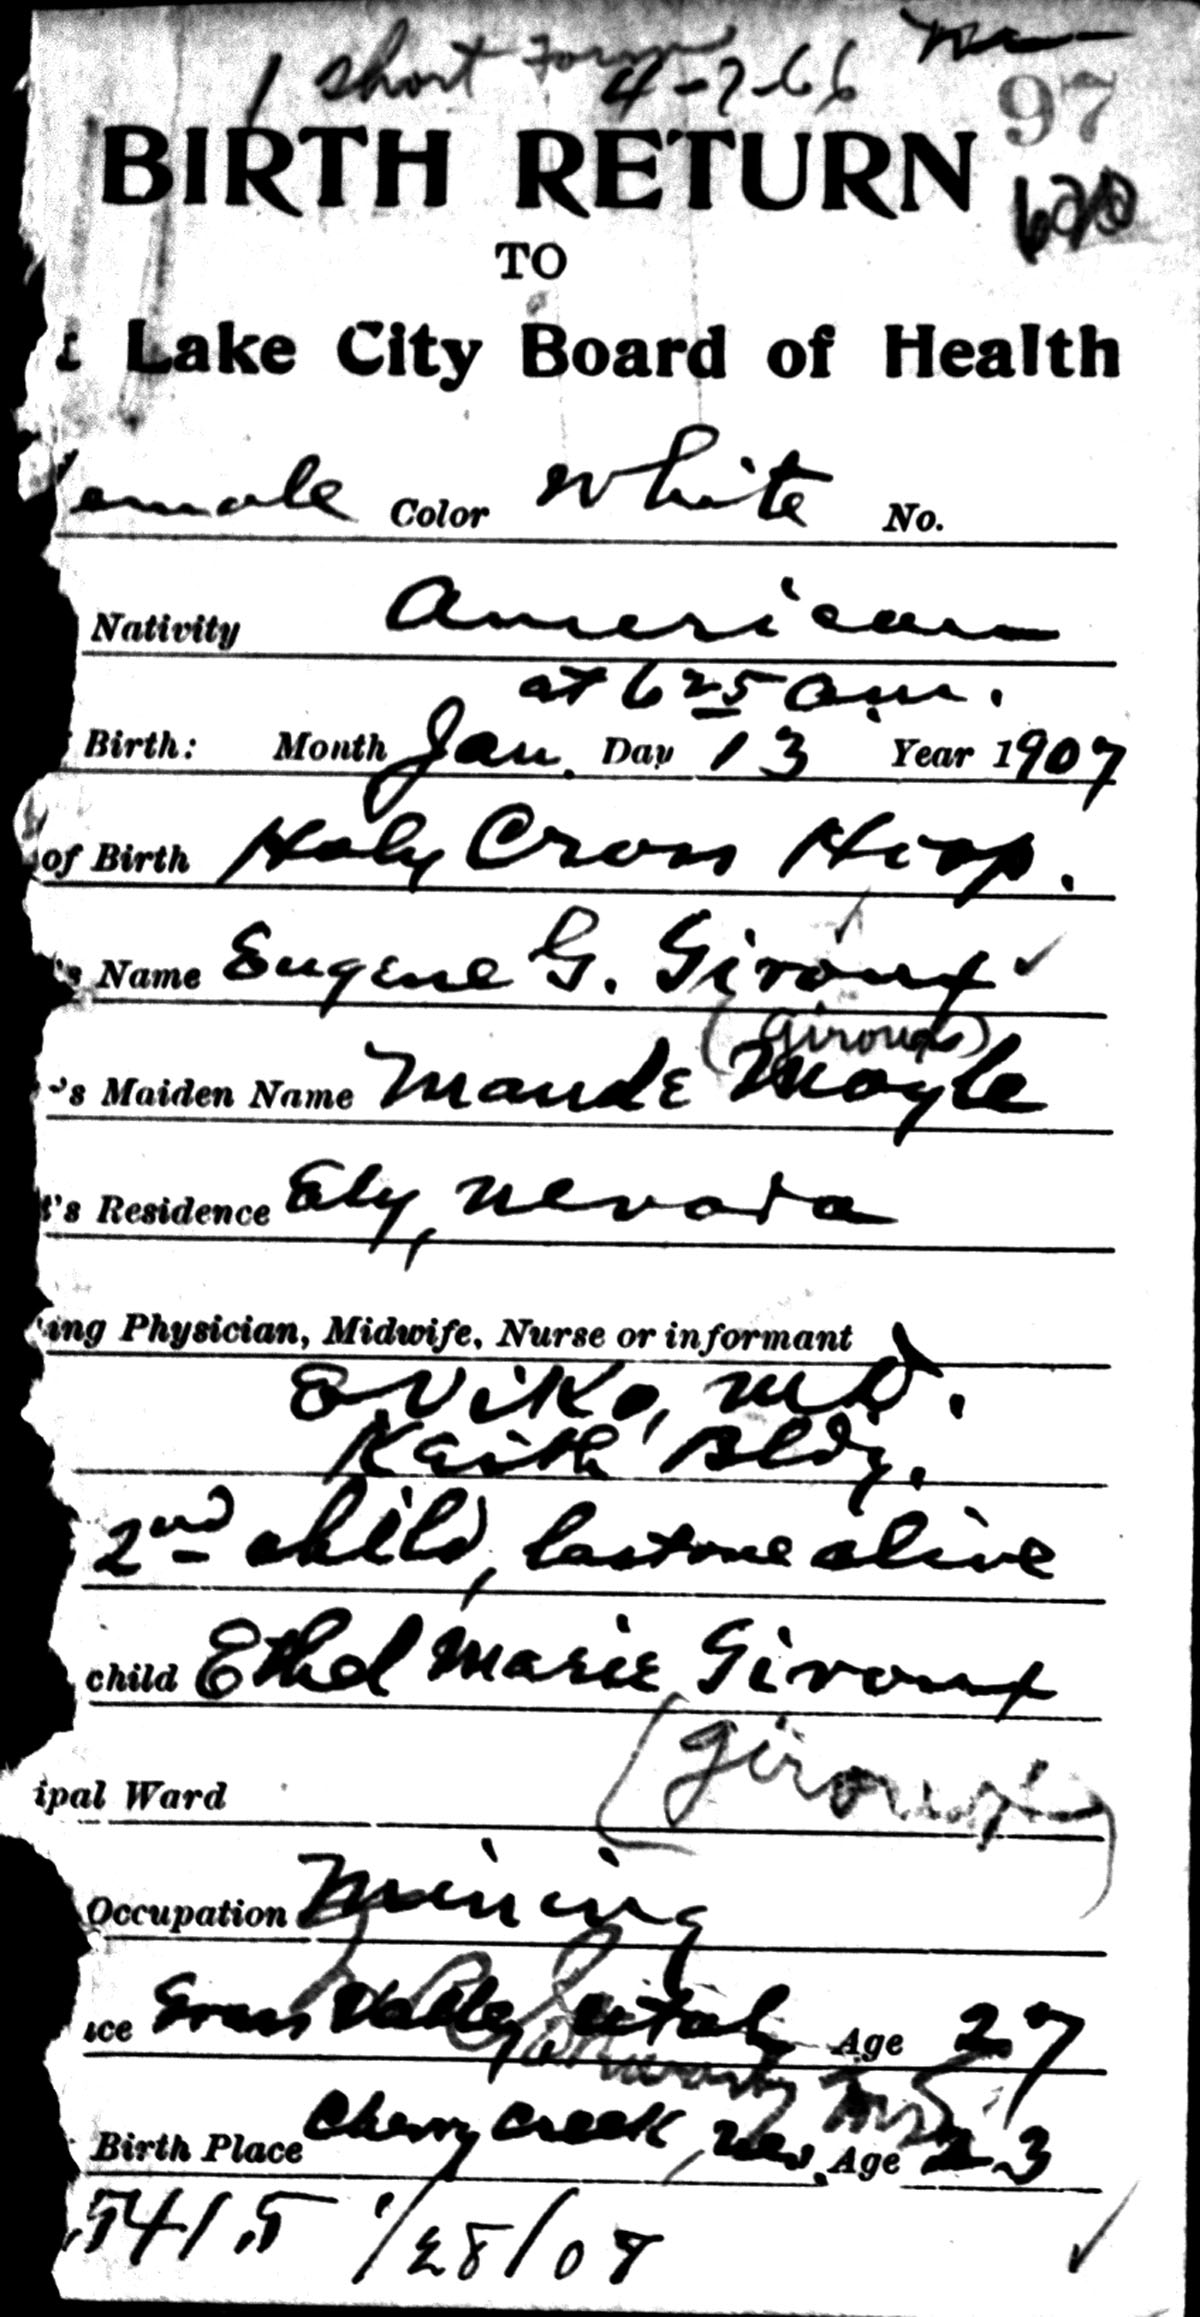 1 short Form 4-7-66
97
BIRTH RETURN
TO
t Lake City Board of Health
emale Color White No.
Nativity American
at 6 25 a.m.
Birth: Month Jan. Day 13 Year 1907
of Birth Holy Cross Hosp.
's Name Eugene G. Giroux ✓
(Giroux)
's Maiden Name Maude Moyle
t's Residence Ely, Nevada
ing Physician, Midwife, Nurse or informant
E. Viko, M.D.
Keith Bldg.
2nd child, last one alive
child Ethel Marie Giroux
(Giroux)
ipal Ward
Occupation Mining
ace Grass Valley, Utah Age 27
Birth Place Cherry Creek, Nev. Age 23
5415 1/28/07 ✓